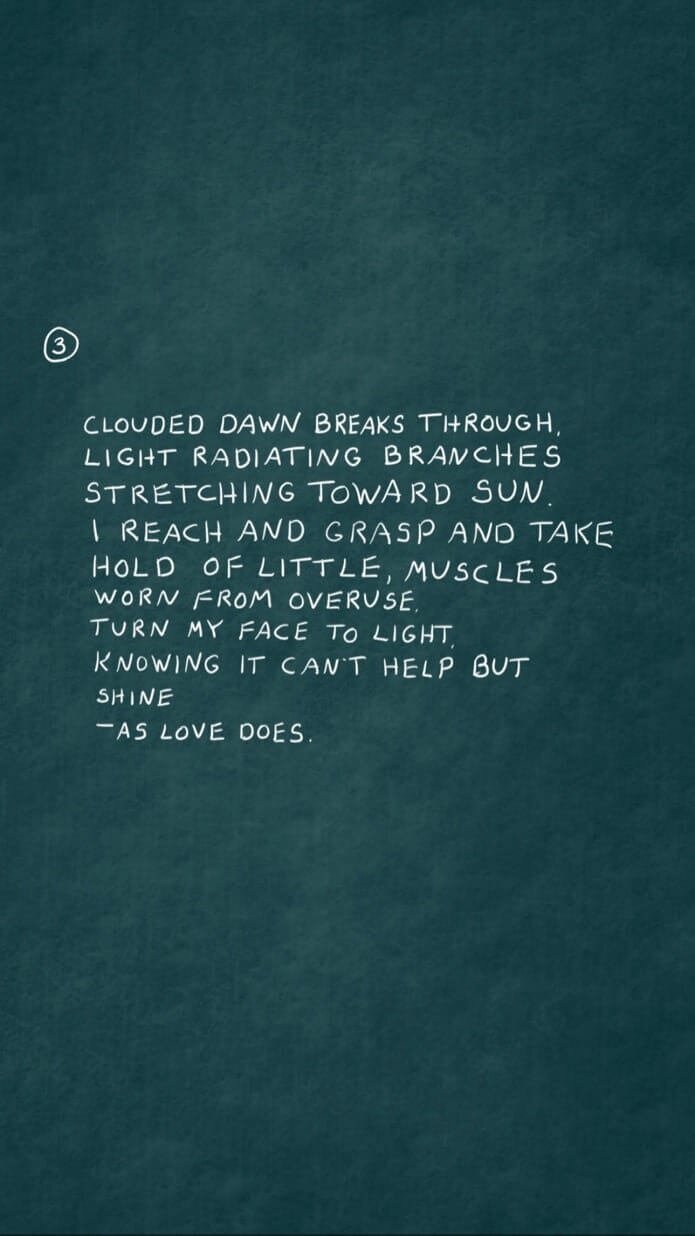 3
CLOUDED DAWN BREAKS THROUGH,
LIGHT RADIATING BRANCHES
STRETCHING TOWARD SUN.
I REACH AND GRASP AND TAKE
HOLD OF LITTLE, MUSCLES
WORN FROM OVERUSE.
TURN MY FACE TO LIGHT,
KNOWING IT CAN'T HELP BUT
SHINE
—AS LOVE DOES.